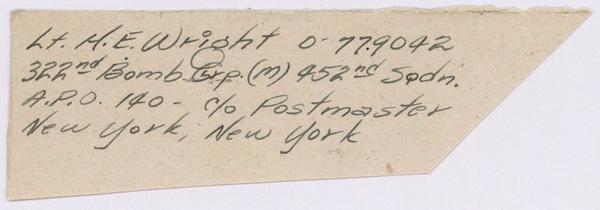 Lt. H.E. Wright O-779042
322nd Bomb Grp. (M) 452nd Sqdn.
A.P.O. 140 - c/o Postmaster
New York, New York